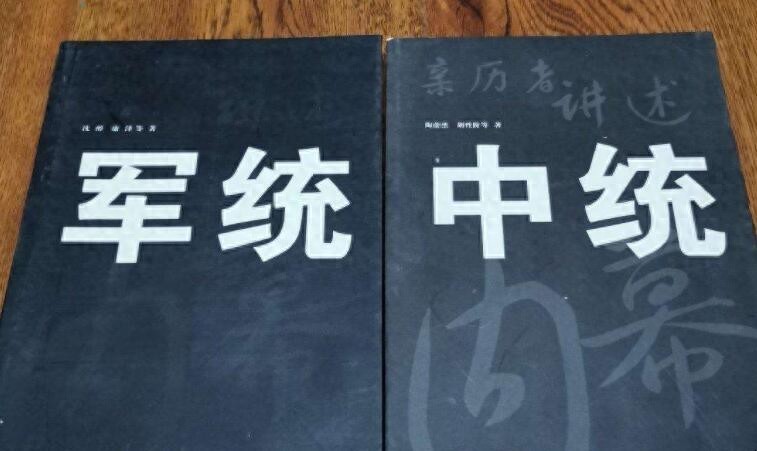 沈醉 康泽等 著
军统
亲历者
讲述
陶蔚然 等 著
中统
内幕